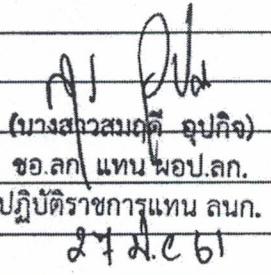 (นางสาวสมฤดี อุปกิจ)
ชอ.ลก. แทน ผอป.ลก.
ปฏิบัติราชการแทน ลนก.
27 มี.ค 61